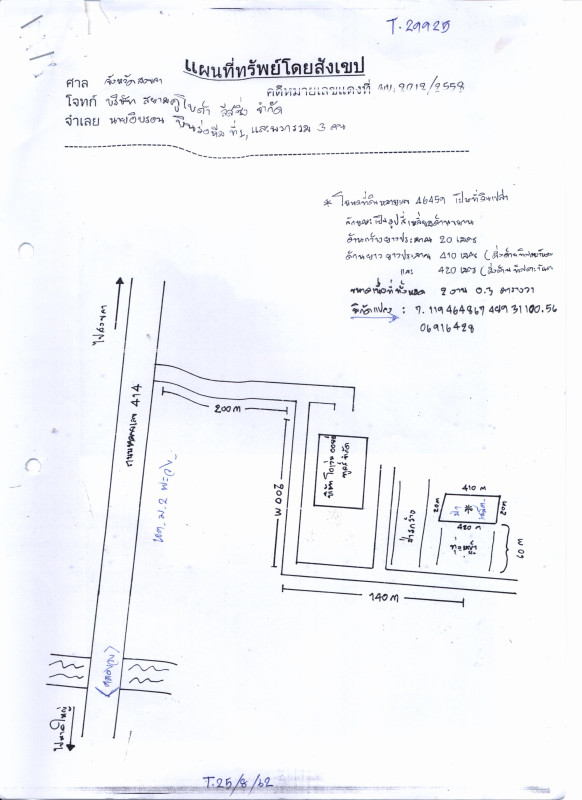 T. 29925
แผนที่ทรัพย์โดยสังเขป
ศาล จังหวัดสงขลา
คดีหมายเลขแดงที่ ผบ. 2012/2558
โจทก์ บริษัท สยามคูโบต้า ลีสซิ่ง จำกัด
จำเลย นายอิบรอน ที่ 1, และพวกรวม 3 คน
* โฉนดที่ดินหมายเลข 46459 เป็นที่ดินเปล่า
ลักษณะเป็นรูปสี่เหลี่ยม
ด้านกว้างยาวประมาณ 20 เมตร
ด้านยาว ยาวประมาณ 410 เมตร (
และ 420 เมตร (
ขนาดเนื้อที่ทั้งหมด 2 งาน 0.3 ตารางวา
พิกัดแปลง : 7.119464867449 31100.56
06916428
ไปสงขลา
ถนนหมายเลข 414
200 m
200 m
บริษัท จำกัด
410 m
20m
*
20m
420 m
ทุ่งหญ้า
60 m
140 m
(คลอง)
ไปหาดใหญ่
T. 25/8/62